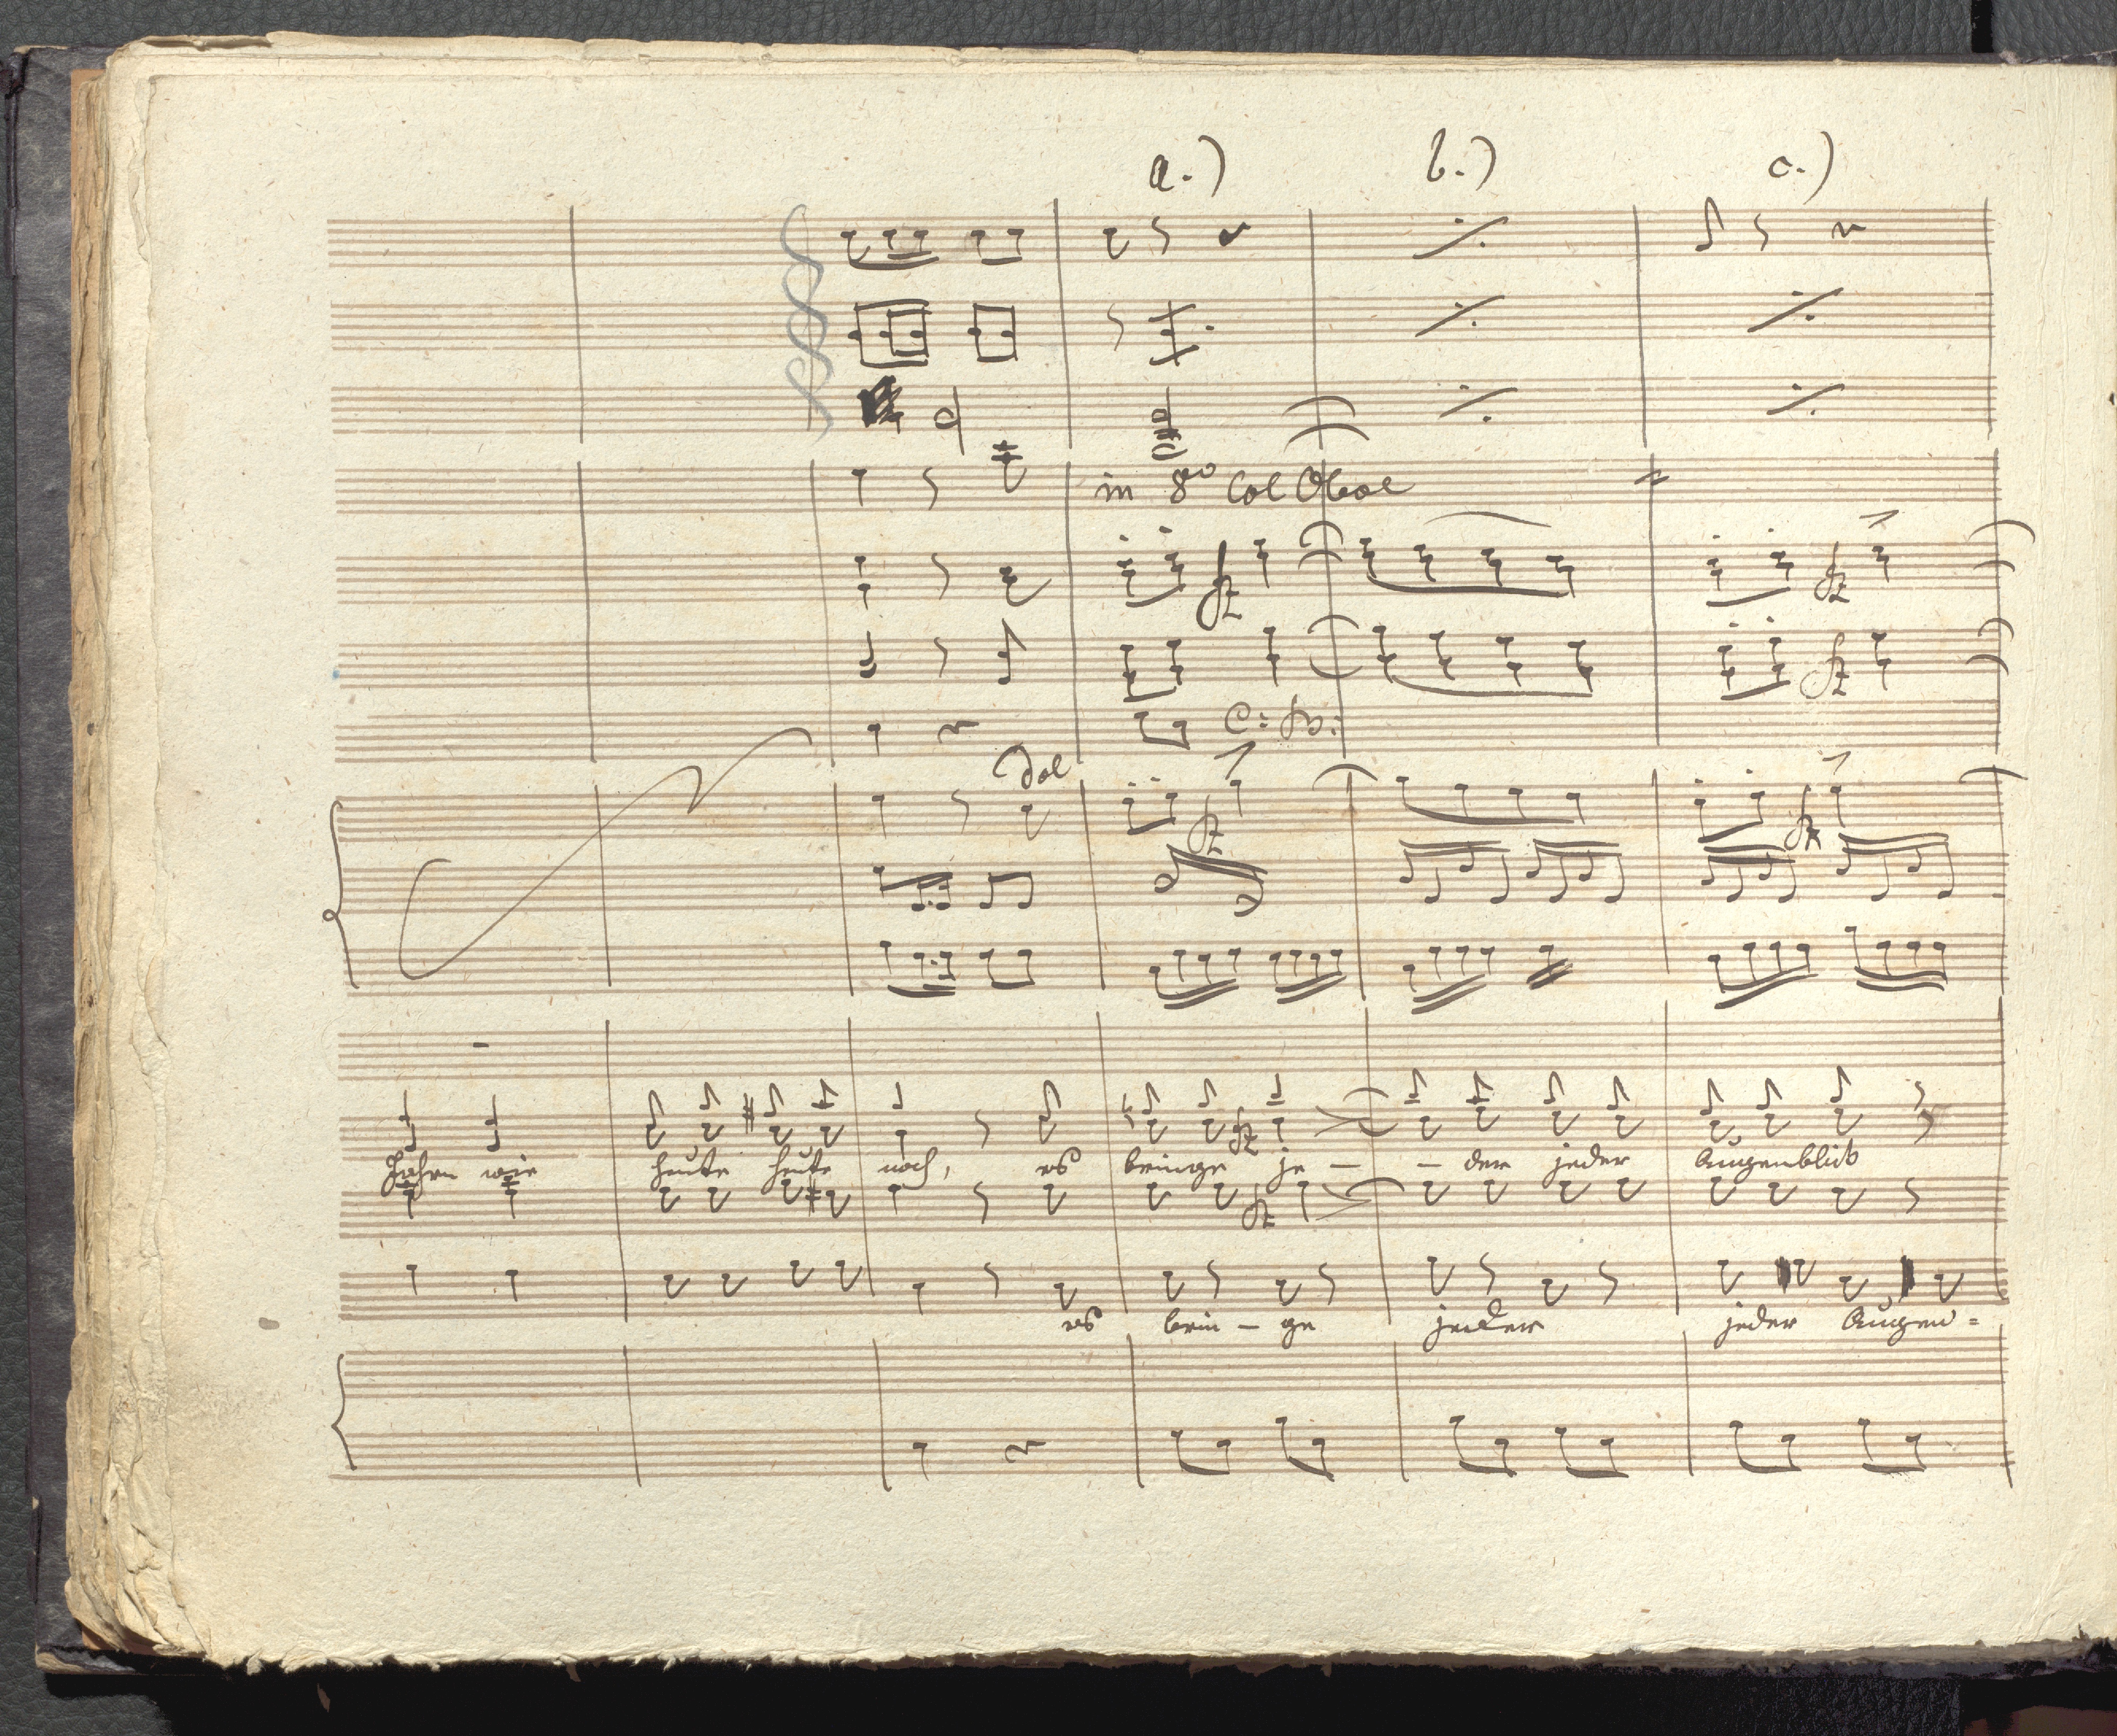 a.) b.) c.)
in 8vo Col Oboe
fz fz
fz
C: B:
Dol
fz fz
Jahren wie heute heute noch, es bringe je – – der jeder Augenblick
fz
fz
es brin – ge jeder jeder Augen =